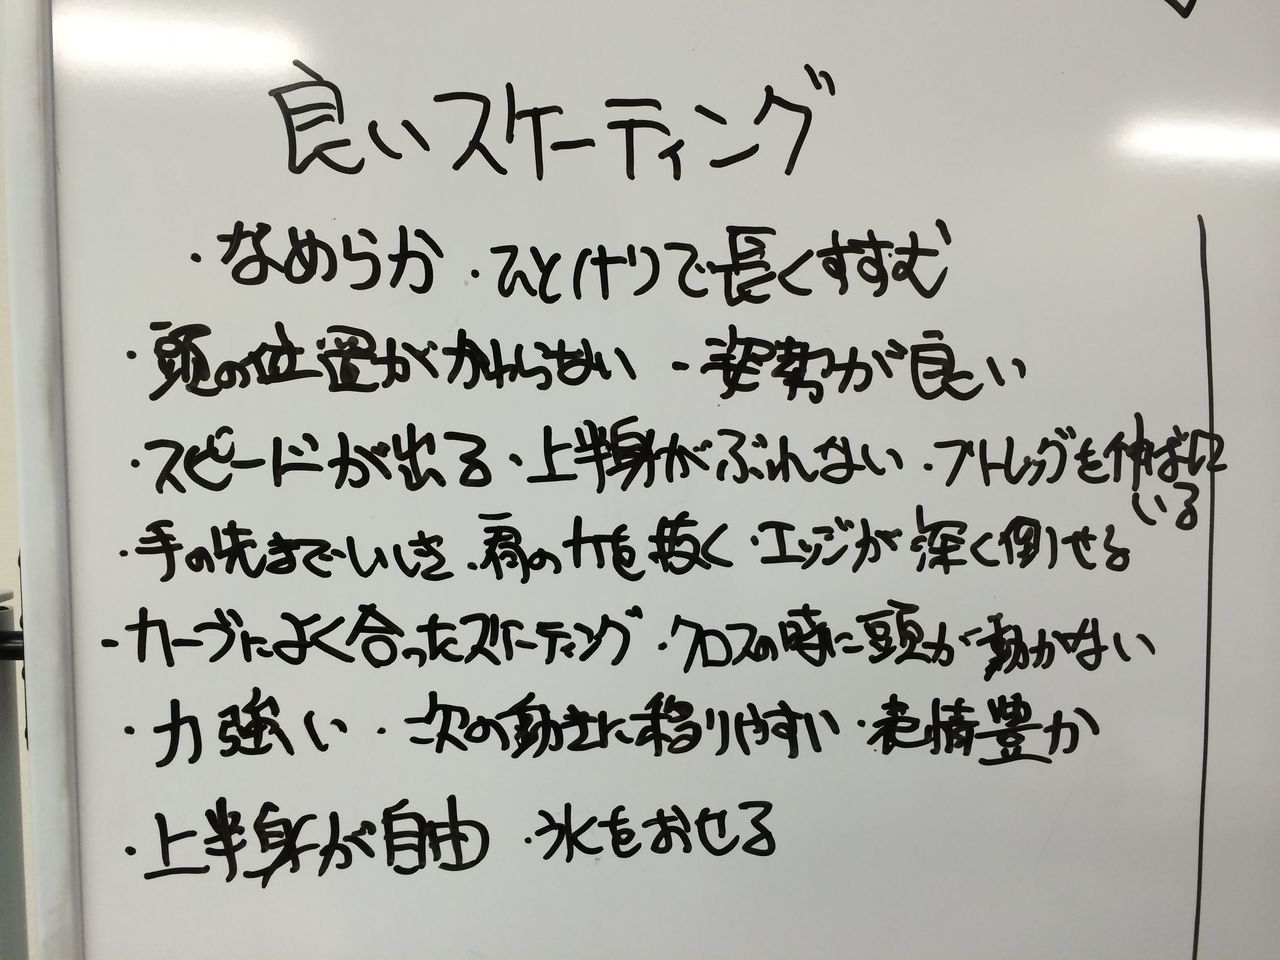 良いスケーティング
・なめらか ・ひとけりで長くすすむ
・頭の位置がかわらない ・姿勢が良い
・スピードが出る ・上半身がぶれない ・フリーレッグを伸ばして
いる
・手の先まで ・肩の力を抜く ・エッジが深く倒せる
・カーブによく合ったスケーティング ・クロスの時に頭が動かない
・力強い ・次の動きに移りやすい ・表情豊か
・上半身が自由 ・氷をおせる